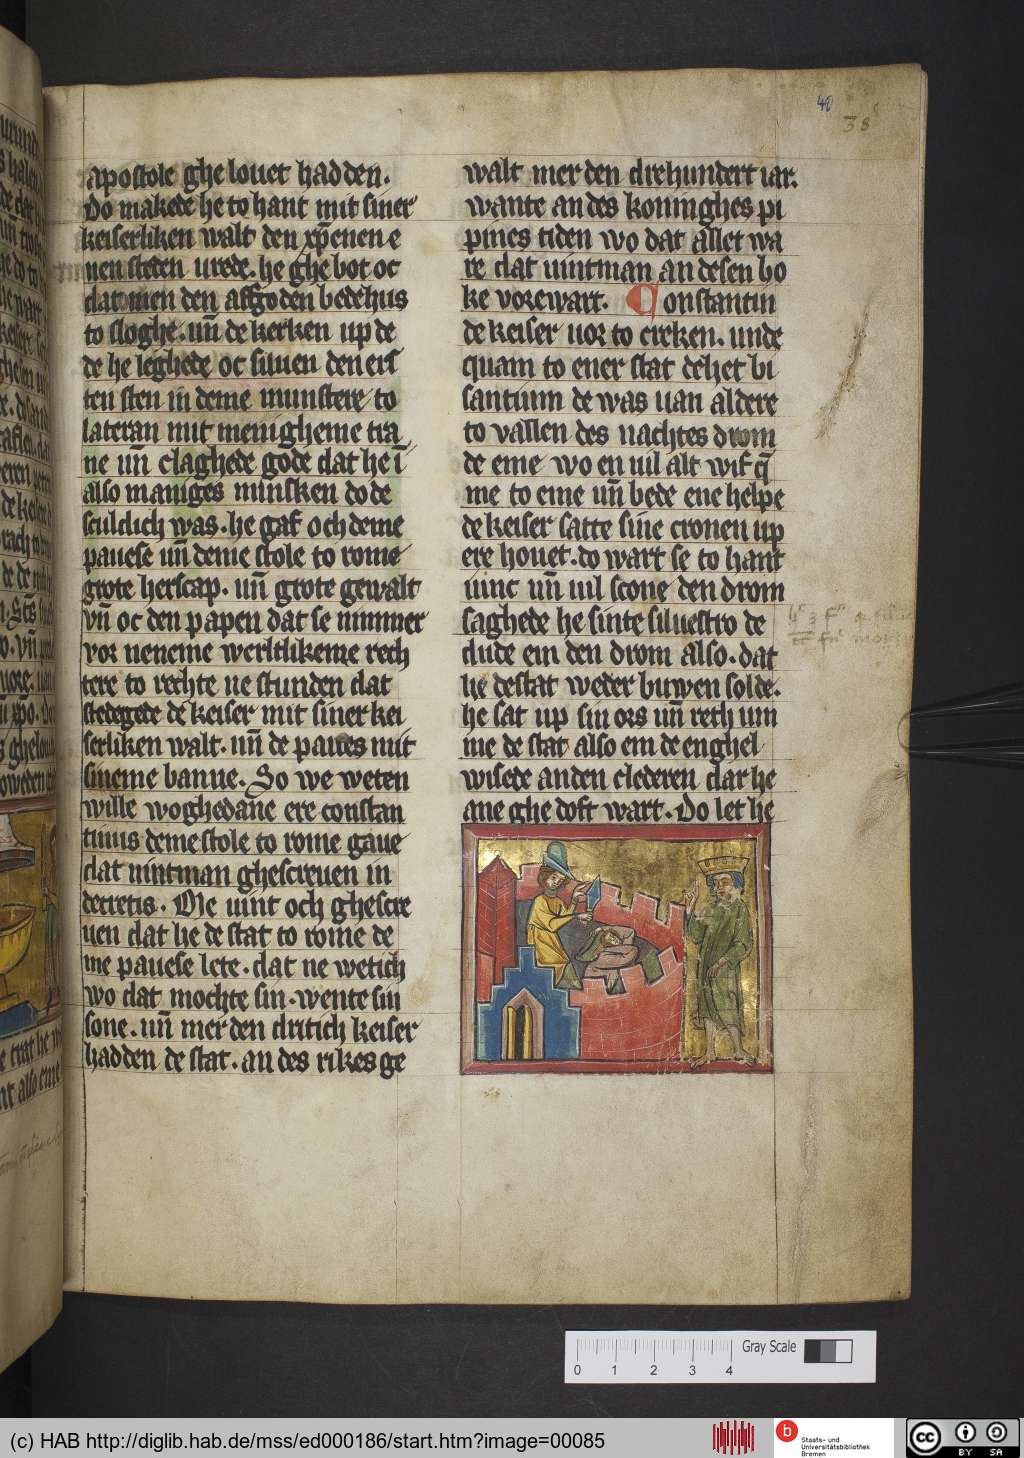 40
38
apostole ghe louet hadden.
Do makede he to hant mit siner
keiserliken walt den xp̄enen e
nen steden urede. he ghe bot oc
dat men den affgoden bedehus
to sloghe. un̄ de kerken up de
de he leghede oc siluen den eirs
ten sten in deme munstere to
lateran mit menigheme tra
ne un̄ claghede gode dat he ī
also maniges minsken dode
sculdich was. he gaf och deme
pauese un̄ deme stole to rome
grote herscap. un̄ grote gewalt
vn̄ oc den papen dat se nimmer
vor neneme werltlikeme rech
tere to rechte ne stunden dat
stedegede de keiser mit siner kei
serliken walt. un̄ de paues mit
sineme banne. So we weten
wille woghedane ere constan
tinus deme stole to rome gaue
dat uintman ghescreuen in
decretis. Me uint och ghescre
uen dat he de stat to rome de
me pauese lete. dat ne wetich
wo dat mochte sin. wente sin
sone. un̄ mer den dritich keiser
hadden de stat. an des rikes ge
walt mer den drehundert iar.
wante an des koninghes pi
pines tiden wo dat allet wa
re dat uintman an desen bo
ke vorewart. Constantin
de keiser uor to cirken. unde
quam to ener stat dehet bi
santium de was uan aldere
to vallen des nachtes drom
de eme wo en uil alt wif q̄
me to eme un̄ bede ene helpe
de keiser satte sine cronen up
ere houet. do wart se to hant
iunc un̄ uil scone den drom
saghede he sinte siluestro de
dude em den drom also. dat
he destat weder buwen solde.
he sat up sin ors un̄ reth um
me de stat also em de enghel
wisede anden clederen dar he
ane ghe doft wart. Do let he
Gray Scale
0 1 2 3 4
(c) HAB http://diglib.hab.de/mss/ed000186/start.htm?image=00085
b
Staats- und
Universitätsbibliothek
Bremen
cc
BY SA